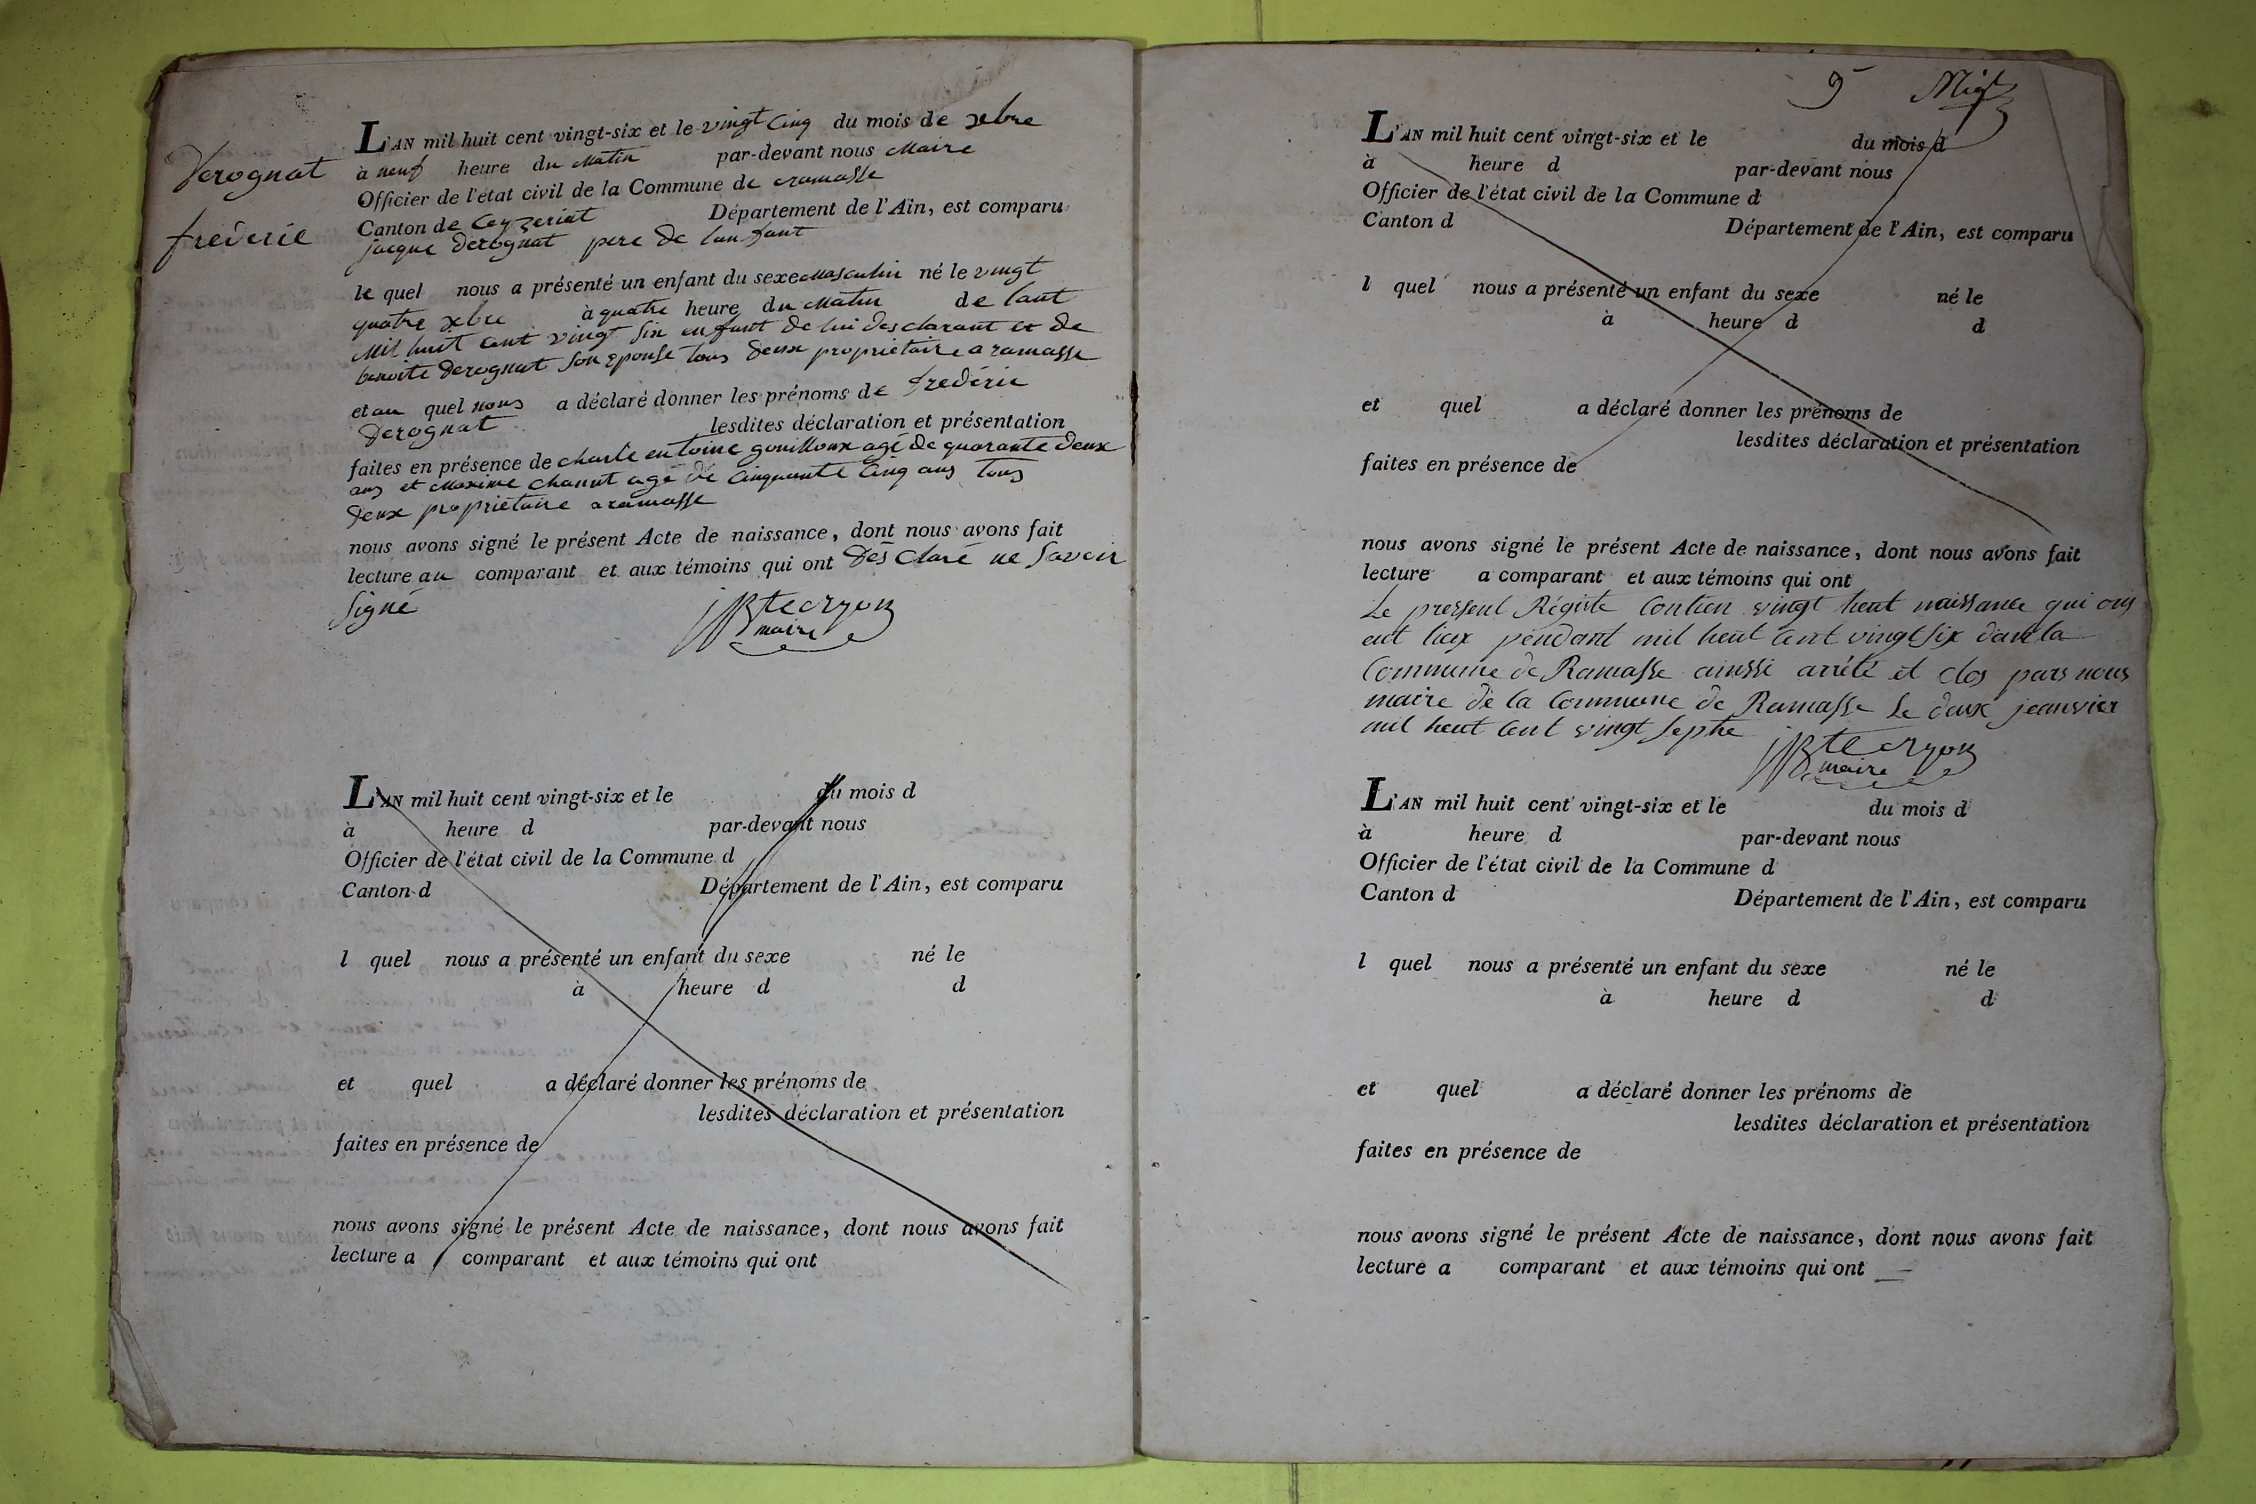 Derognat
frederic
L'AN mil huit cent vingt-six et le vingt cinq du mois de xbre
à neuf heure du matin par-devant nous Maire
Officier de l'état civil de la Commune de ramasse
Canton de Ceyzeriat Département de l'Ain, est comparu
jacque derognat pere de lanfant
le quel nous a présenté un enfant du sexe masculin né le vingt
quatre xbre à quatre heure du matin de lant
mil huit cent vingt six enfant de lui desclarant et de
benoite derognat son eponse tous deux propriétaire a ramasse
et au quel nous a déclaré donner les prénoms de frederic
derognat lesdites déclaration et présentation
faites en présence de charle entoine gouilloux agé de quarante deux
ans et maxime chanut agé de cinquante cinq ans tous
deux propriétaire a ramasse
nous avons signé le présent Acte de naissance, dont nous avons fait
lecture au comparant et aux témoins qui ont desclaré ne savoir
signé
maire
L'AN mil huit cent vingt-six et le du mois d
à heure d par-devant nous
Officier de l'état civil de la Commune d
Canton d Département de l'Ain, est comparu
l quel nous a présenté un enfant du sexe né le
à heure d d
et quel a déclaré donner les prénoms de
lesdites déclaration et présentation
faites en présence de
nous avons signé le présent Acte de naissance, dont nous avons fait
lecture a comparant et aux témoins qui ont
9
L'AN mil huit cent vingt-six et le du mois d
à heure d par-devant nous
Officier de l'état civil de la Commune d
Canton d Département de l'Ain, est comparu
l quel nous a présenté un enfant du sexe né le
à heure d d
et quel a déclaré donner les prénoms de
lesdites déclaration et présentation
faites en présence de
nous avons signé le présent Acte de naissance, dont nous avons fait
lecture a comparant et aux témoins qui ont
Le pressent Régistre Contien vingt heut naissance qui ons
eut lieux pendant mil heut cent vingt six dans la
Commune de Ramasse ainssi arrêté et clos pars nous
maire de la Commune de Ramasse Le deux jeanvier
mil heut cent vingt septe
maire
L'AN mil huit cent vingt-six et le du mois d
à heure d par-devant nous
Officier de l'état civil de la Commune d
Canton d Département de l'Ain, est comparu
l quel nous a présenté un enfant du sexe né le
à heure d d
et quel a déclaré donner les prénoms de
lesdites déclaration et présentation
faites en présence de
nous avons signé le présent Acte de naissance, dont nous avons fait
lecture a comparant et aux témoins qui ont